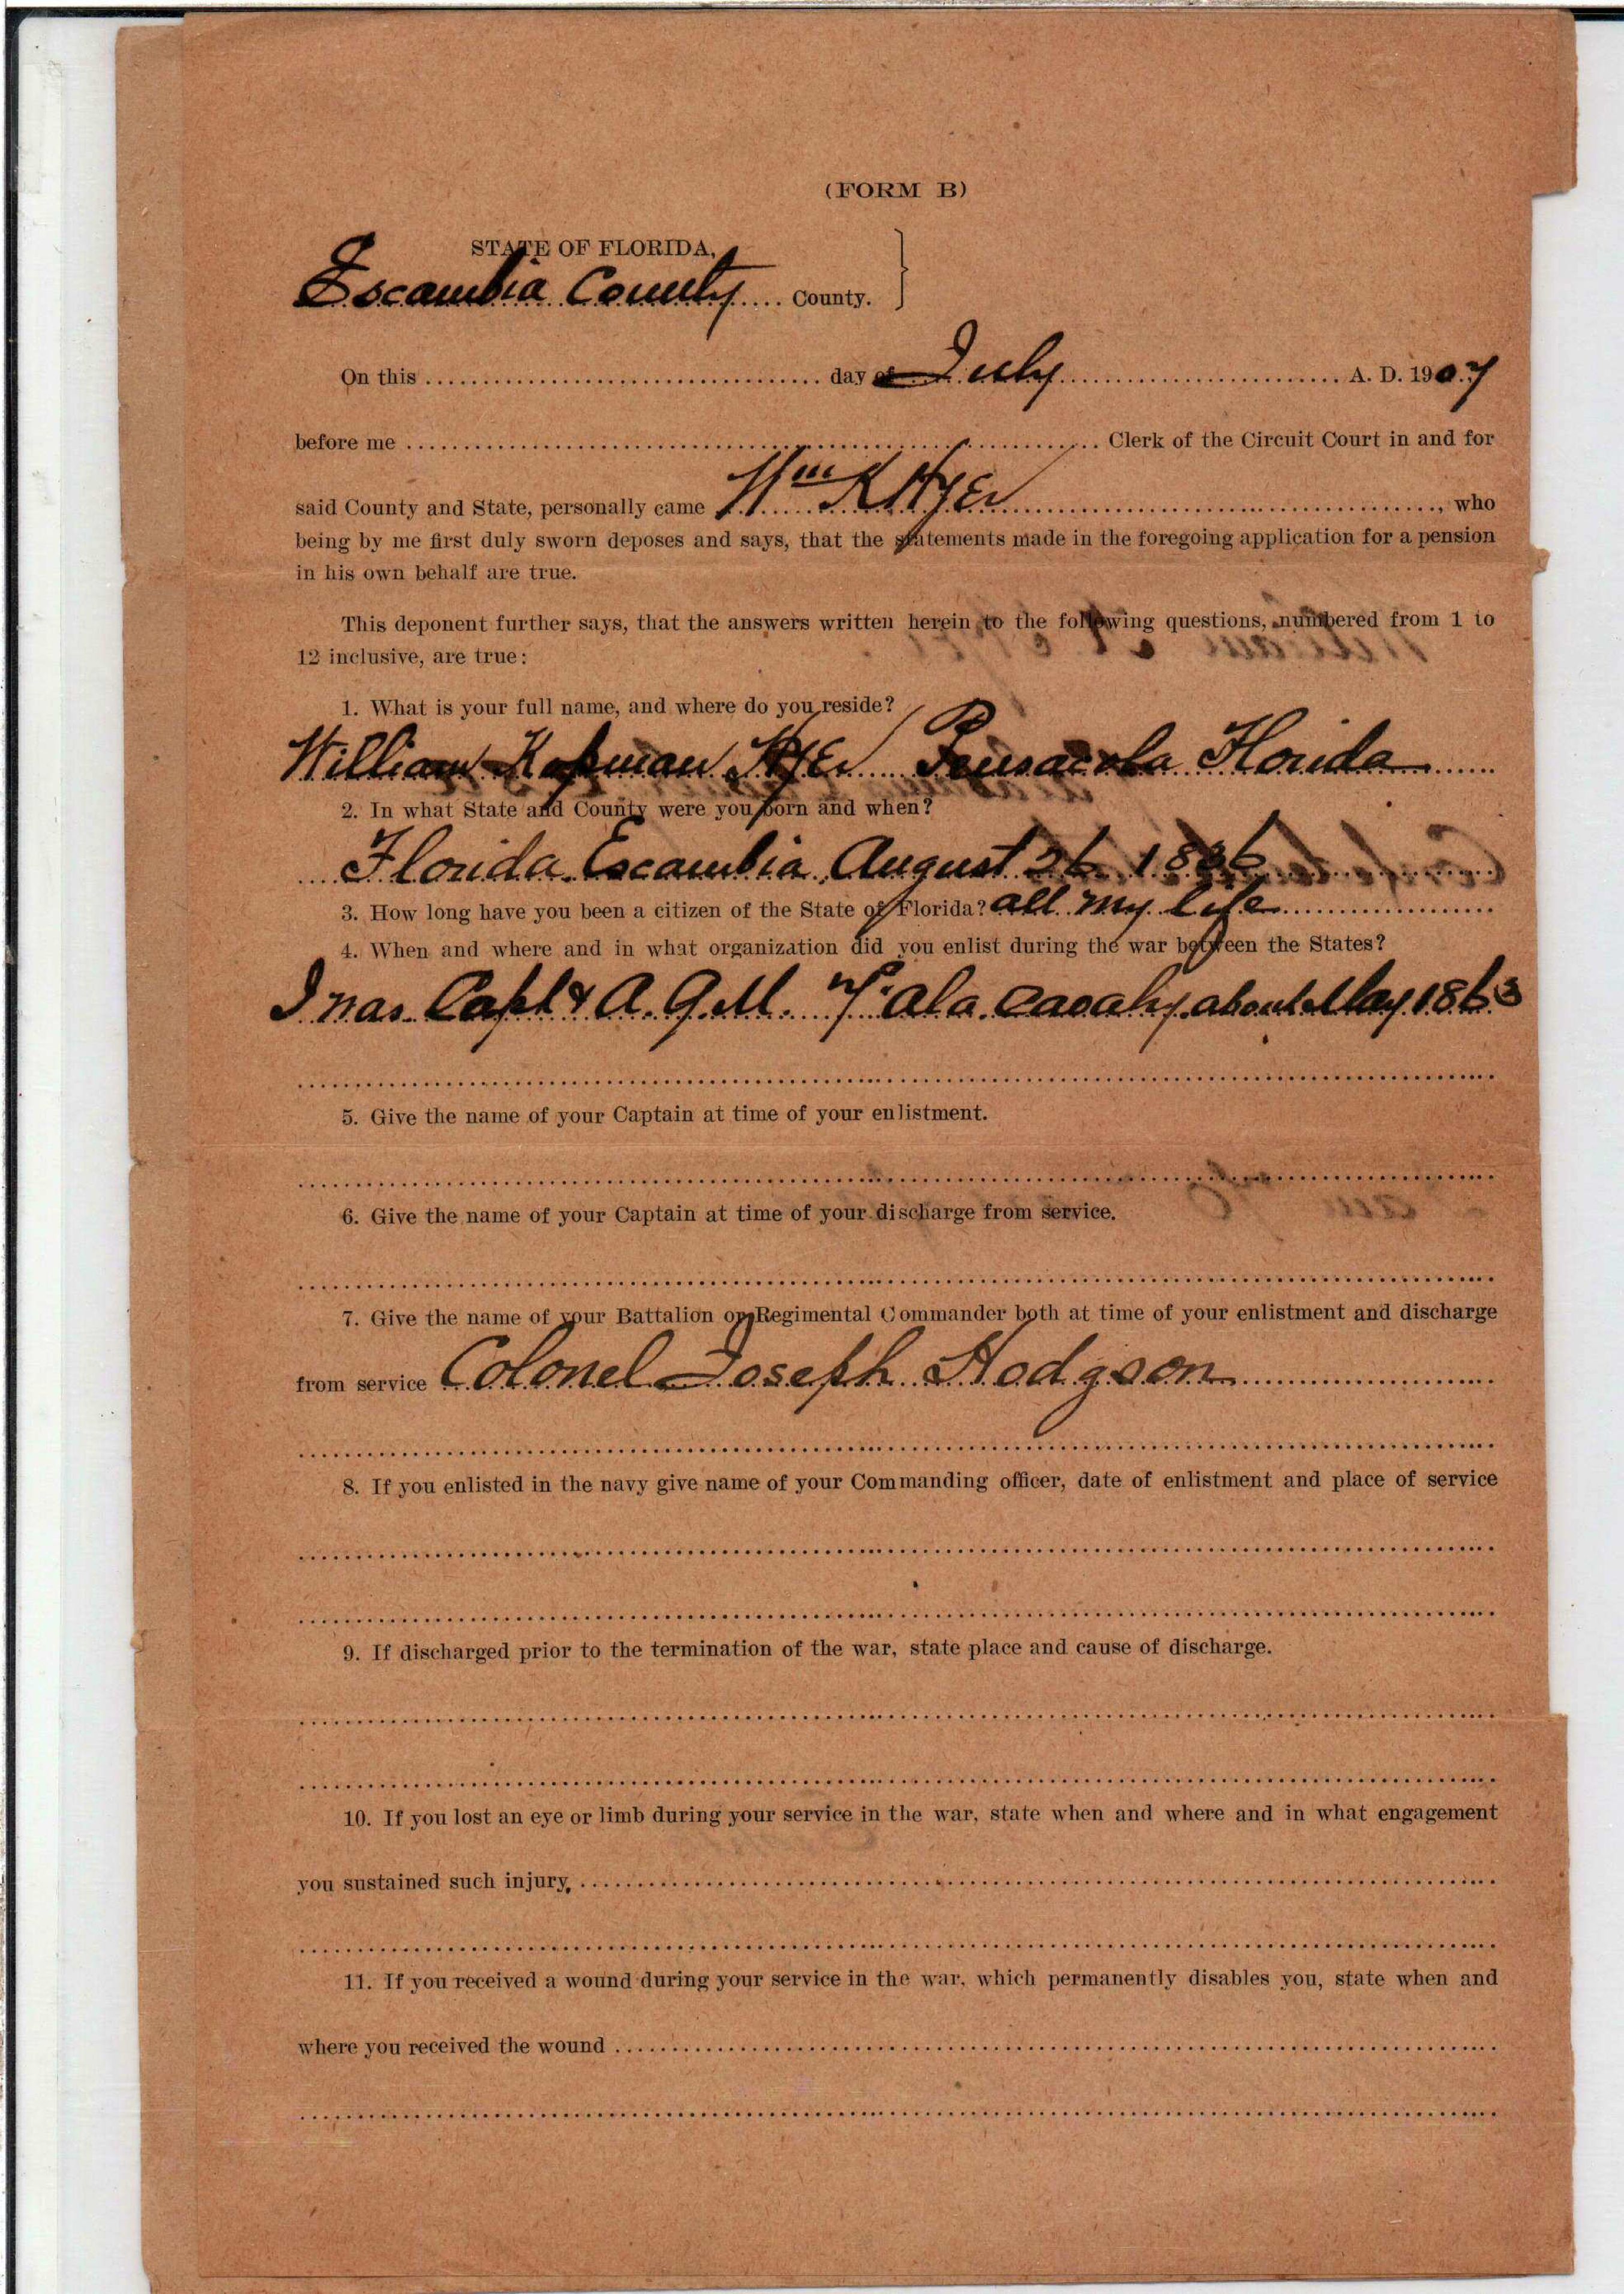 (FORM B)
STATE OF FLORIDA,
Escambia County .... County.
On this .... day of July .... A. D. 1907
before me .... Clerk of the Circuit Court in and for
said County and State, personally came Wm K Hyer ...., who
being by me first duly sworn deposes and says, that the statements made in the foregoing application for a pension
in his own behalf are true.
This deponent further says, that the answers written herein to the following questions, numbered from 1 to
12 inclusive, are true:
1. What is your full name, and where do you reside?
William Hyer Pensacola Florida
2. In what State and County were you born and when?
Florida. Escambia, August 26 1836
3. How long have you been a citizen of the State of Florida? all my life
4. When and where and in what organization did you enlist during the war between the States?
I was Capt & A. Q. M. 7th Ala. Cavalry about May 1863
5. Give the name of your Captain at time of your enlistment.
6. Give the name of your Captain at time of your discharge from service.
7. Give the name of your Battalion or Regimental Commander both at time of your enlistment and discharge
from service Colonel Joseph Hodgson
8. If you enlisted in the navy give name of your Commanding officer, date of enlistment and place of service
9. If discharged prior to the termination of the war, state place and cause of discharge.
10. If you lost an eye or limb during your service in the war, state when and where and in what engagement
you sustained such injury,
11. If you received a wound during your service in the war, which permanently disables you, state when and
where you received the wound